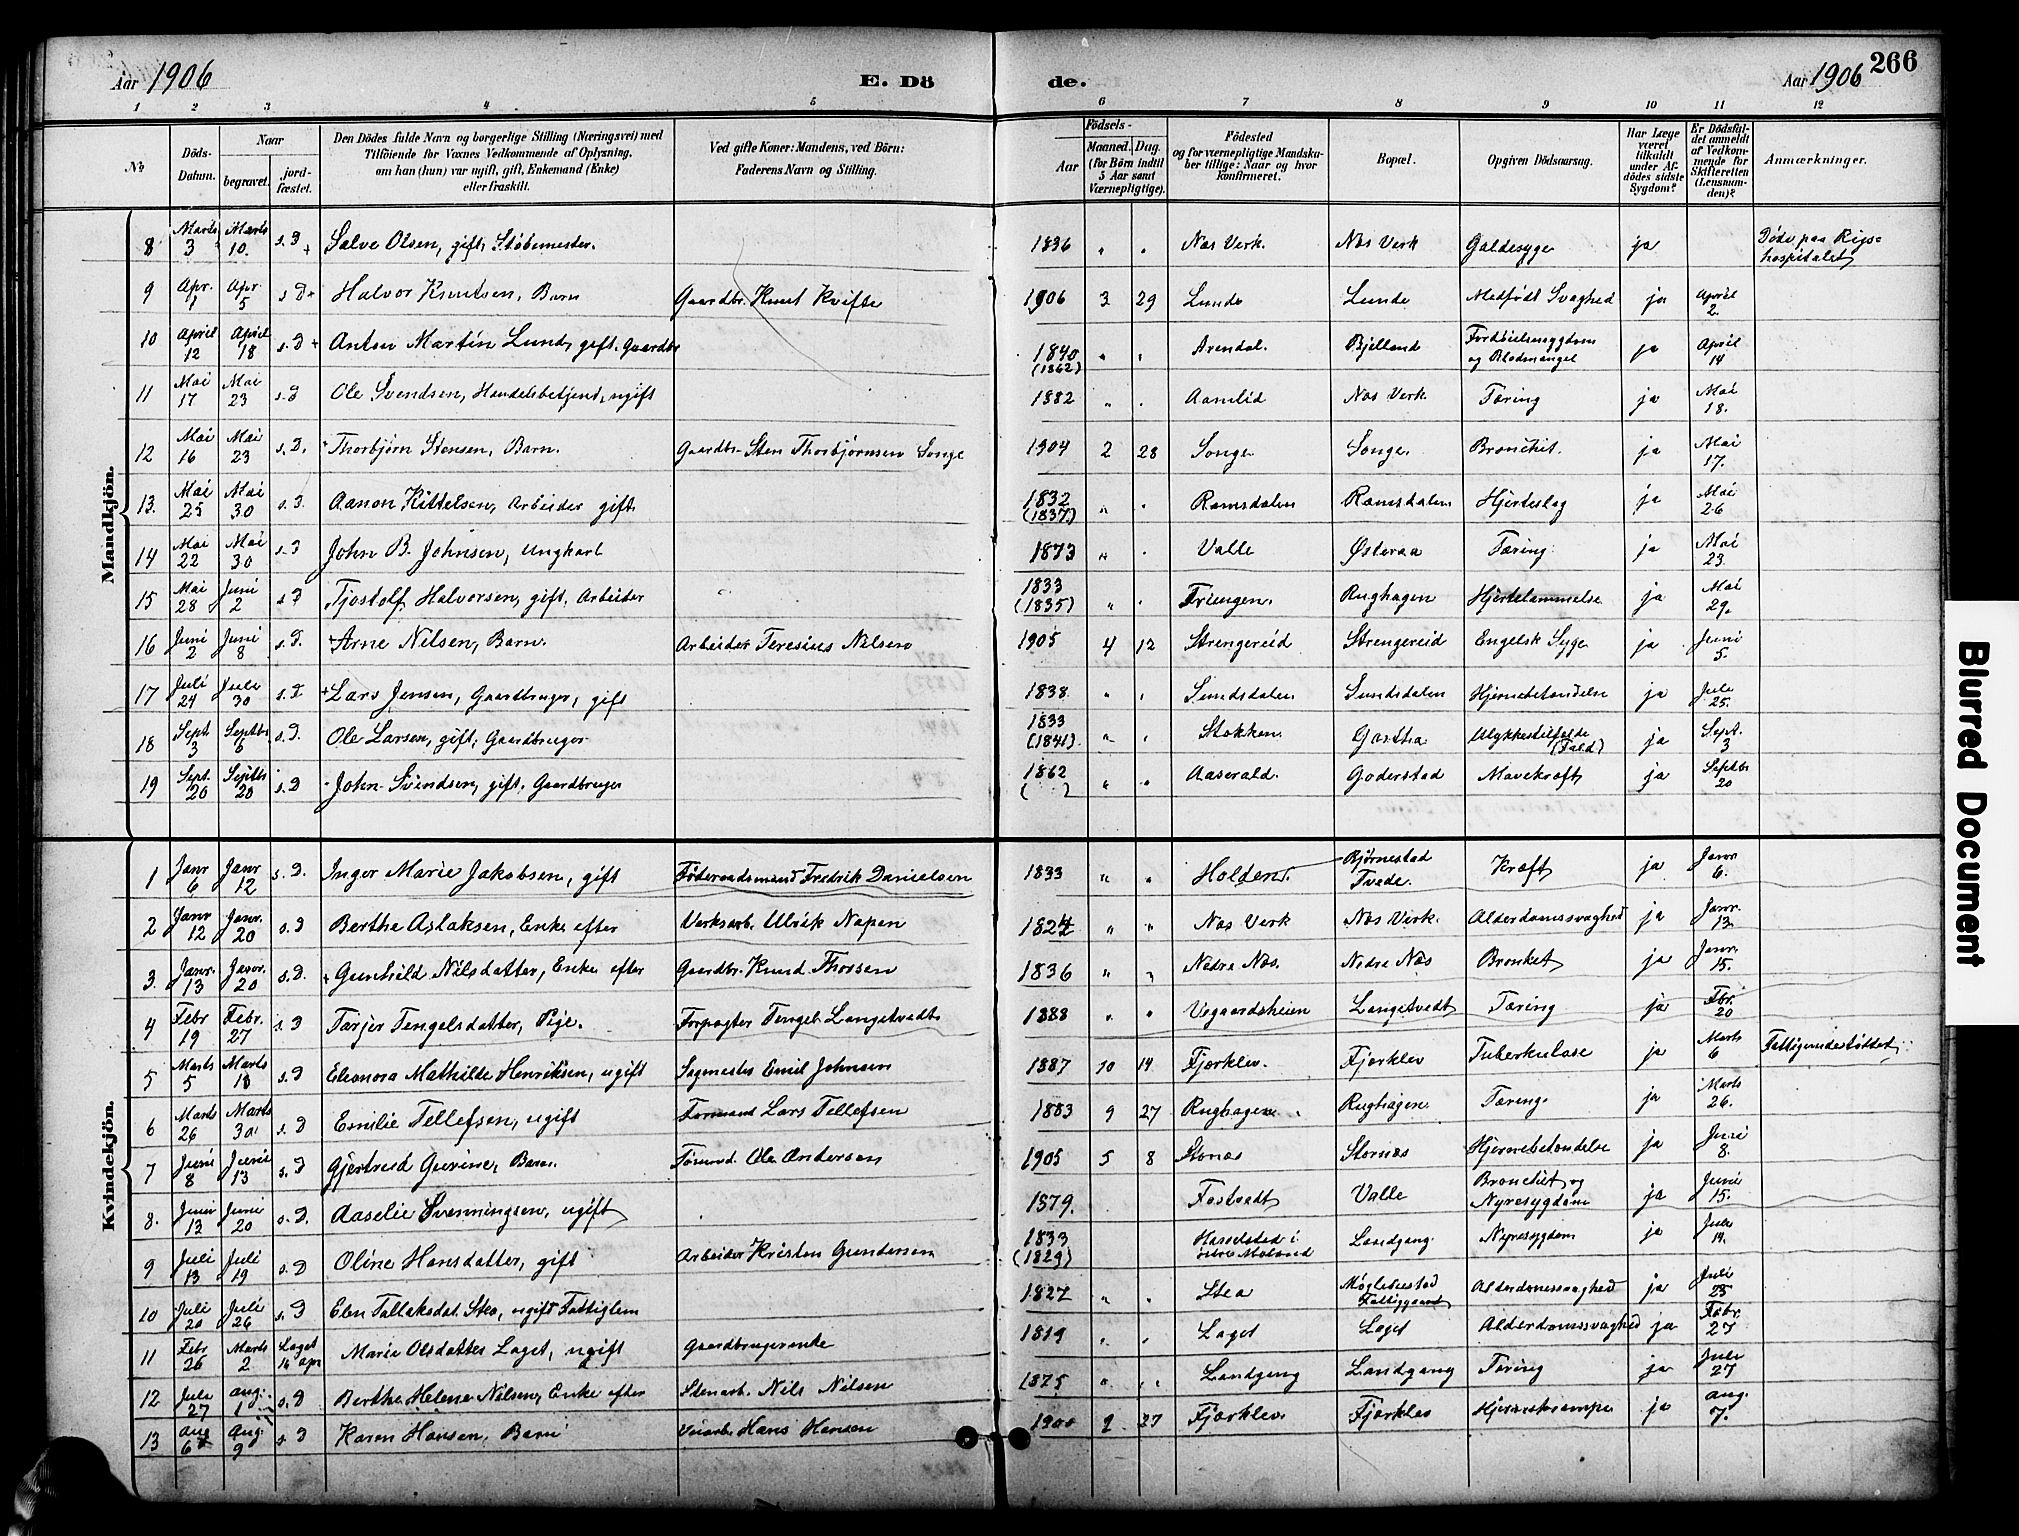 Aar 1906 E. Dö de. Aar 1906 266
1 2 3 4 5 6 7 8 9 10 11 12
No. Döds-Datum. Naar begravet. jord-fæstet. Den Dödes fulde Navn og borgerlige Stilling (Næringsvei) med Tilföiende for Voxnes Vedkommende af Oplysning, om han (hun) var ugift, gift, Enkemand (Enke) eller fraskilt. Ved gifte Koner: Mandens, ved Börn: Faderens Navn og Stilling. Födsels- Aar Maaned. Dag. (for Börn indtil 5 Aar samt Værnepligtige). Födested og for værnepligtige Mandskaber tillige: Naar og hvor konfirmeret. Bopæl. Opgiven Dödsaarsag. Har Læge været tilkaldt under Afdödes sidste Sygdom? Er Dödsfaldet anmeldt af Vedkommende for Skifteretten (Lensmanden)? Anmærkninger.
Mandkjön.
8 Marts 3 Marts 10. s. D Salve Olsen, gift, Støbemester. 1836 " " Næs Verk. Næs Verk Galdesyge ja Døde paa Rigshospitalet
9 Apr. 1 Apr 5 s D Halvor Knutsen, Barn Gaardbr. Knut Kvifte 1906 3 29 Lunde Lunde Medfødt Svaghed ja April 2.
10 April 12 April 18 s. D Anton Martin Lund, gift. Gaardbr 1840 (1862) " " Arendal. Bjelland Fordøielsessygdom og Blodmangel ja April 14
11 Mai 17 Mai 23 s. D Ole Svendsen, Handelsbetjent, ugift 1882 " . Aamlid Næs Verk Tæring ja Mai 18.
12 Mai 16 Mai 23 s. D. Thorbjørn Stensen, Barn. Gaardbr. Sten Thorbjørnsen Songe 1904 2 28 Songe Songe. Bronchit. ja Mai 17.
13. Mai 25 Mai 30 s. D. Aanon Kittelsen, Arbeider gift 1832 (1837) " . Ramsdalen Ramsdalen Hjerteslag ja Mai 26
14 Mai 22 Mai 30 s. D John B. Johnsen, Ungkarl 1873 " . Valle Østeraa Tæring ja Mai 23.
15 Mai 28 Juni 2 s D Tjostolf Halvorsen, gift, Arbeider 1833 (1835) " . Rughagen Hjertelammelse ja Mai 29.
16 Juni 2 Juni 8 s. D. Arne Nilsen, Barn. Arbeider Teresius Nilsen 1905 4 12 Strengereid Strengereid Engelsk Syge ja Juni 5.
17 Juli 24 Juli 30 s. D. Lars Jensen, Gaardbruger, gift 1838. " . Sundsdalen Sundsdalen Hjernebetændelse ja Juli 25.
18 Sept 3 Septbr 6 s. D. Ole Larsen, gift, Gaardbruger 1833 (1841) " . Stokken Gartha Ulykkestilfælde (Fald) ja Sept. 3
19 Sept. 20 s. D John Svendsen, gift. Gaardbruger 1862 ( ) " . Aaserald. Goderstad Mavekræft ja Septbr 20
Kvindekjön.
1 Janr 6 Janr 12 s. D. Inger Marie Jakobsen, gift Føderaadsmand Fredrik Danielsen 1833 " " Holden. Bjørnestad Tvede. Kræft ja Janr 6.
2 Janr 12 Janr. 20 s. D Berthe Aslaksen, Enke efter Verksarb. Ulrik Napen " " Næs Verk Næs Verk. Alderdomssvaghed ja Janr. 13.
3. Janr. 13 Janr. 20 s. D. Gunhild Nilsdatter, Enke efter Gaardbr. Knud Thorsen 1836 " " Nedre Næs. Nedre Næs Bronket ja Janr. 15.
4 Febr 19 Febr. 27 s. D Tarjer Tengelsdatter, Pige. Forpagter Tengel Langetvedt 1888 " " Vegaardsheien Langetvedt Tæring ja Fbr. 20
5 Marts 5 Marts s. D Eleonora Mathilde Henriksen, ugift Sagmester Emil Johnsen 1887 10 14 Fjærklev. Fjærklev Tuberkulose ja Marts 6 Fattigunderstøttet
6 Marts 26 Marts 30 s. D Emilie Tellefsen, ugift Formand Lars Tellefsen 1883 9 27 Rughagen Rughagen Tæring ja Marts 26.
7 Juni 8 Juni 13 s. D Gjertrud Gurine, Barn. Tømmd. Ole Andersen 1905 5 8 Stornæs Stornæs Hjernebetændelse ja Juni 8.
8. Juni 13 Juni 20 s. D. Aaselie Svenningsen, ugift 1879. Fostvedt Valle Bronchit og Nyresygdom ja Juni 15.
9 Juli 13 Juli 19 s. D Oline Hansdatter, gift Arbeider Kristen Gundersen 1833 (1829) Landgang. Nyresygdom ja Juli 14.
10 Juli 20 Juli 26 s. D Elen Tallaksdat. Stea, ugift Fattiglem 1827 " . Stea Møglebustad Fattiggaard Alderdomssvaghed ja Juli 25
11 Febr 26 Marts 2 Laget 16 apr Marie Olsdatter Laget, ugift Gaardbrugerenke 1819 " . Laget Laget Alderdomssvaghed ja Febr. 27
12 Juli 27 Aug. 1 s. D Berthe Helene Nilsen, Enke efter Stenarb. Nils Nilsen 1875 " . Landgang Landgang Tæring ja Juli 27
13 Aug 6 Aug. 9 s. D Karen Hansen, Barn Veiarb. Hans Hansen 1900 2 27 Fjærklev. Fjærklev Hjernekrampe ja Aug. 7.
Blurred Document